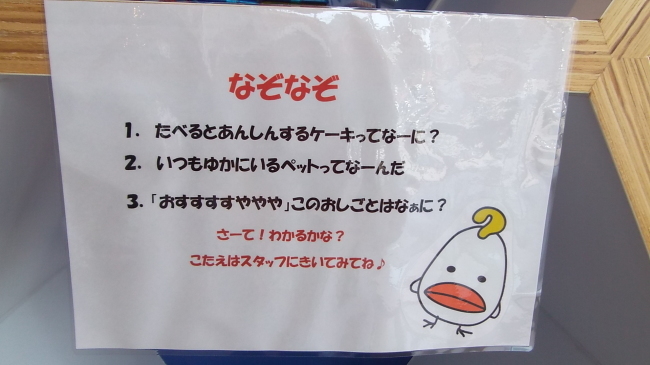 なぞなぞ
1. たべるとあんしんするケーキってなーに？
2. いつもゆかにいるペットってなーんだ
3.「おすすすすやややや」このおしごとはなぁに？
さーて！わかるかな？
こたえはスタッフにきいてみてね♪